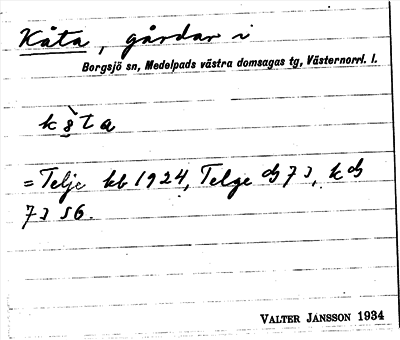 Kåta, gårdar i
Borgsjö sn, Medelpads västra domsagas tg, Västernorrl. l.
kåta
= Telje kb 1924, Telge db 73, k db
73 56.
VALTER JANSSON 1934